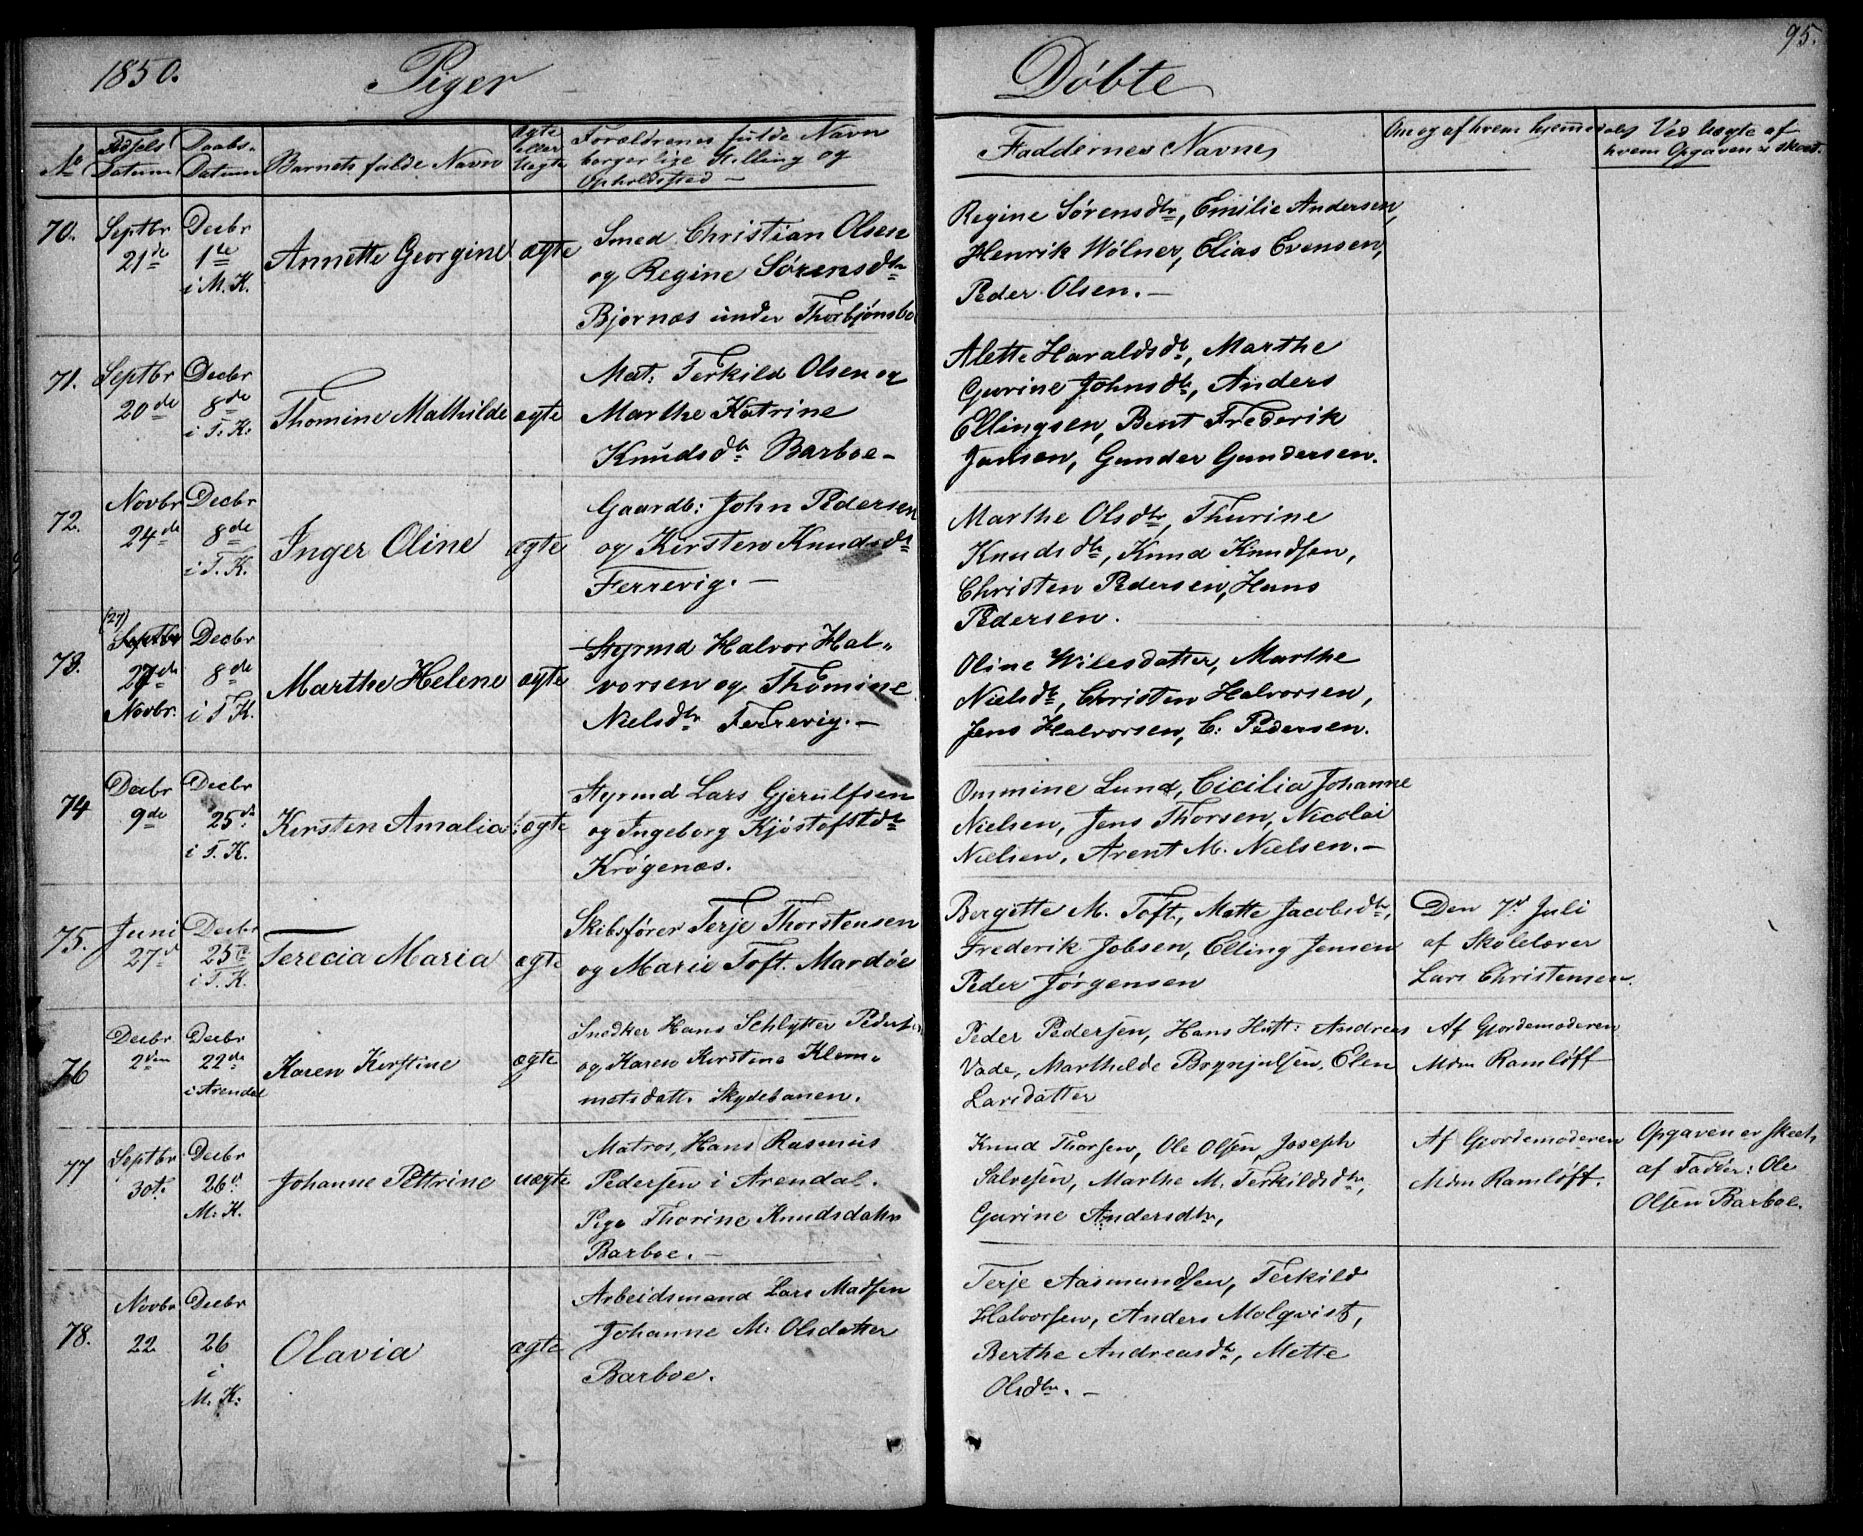 95.
1850. Piger Døbte
No
Fødsels Datum
Daabs- Datum
Barnets fulde Navn
Ægte eller Uægte
Forældrenes fulde Navn
borgerlige Stilling og
Opholdssted —
Faddernes Navne
Om og af hvem hjemmedøbt
Ved Uægte af
hvem Opgaven er skeet.
70. Septbr 21de
Decbr 1te i M. K.
Annette Georgine
ægte
Smed Christian Olsen
og Regine Sørensdtr
Bjørnæs under Thorbjønsbo
Regine Sørensdtr, Emilie Andersen,
Henrik Wölner, Elias Evensen,
Peder Olsen. —
71. Septbr 20de
Decbr 8de i T. K.
Thomine Mathilde
ægte
Mat: Terkild Olsen og
Marthe Katrine
Knudsdtr Barboe —
Alette Haraldsdtr, Marthe
Gurine Johnsdtr, Anders
Ellingsen, Bent Frederik
Jansen, Gunder Gundersen.
72. Novbr 24de
Decbr 8de i T. K.
Inger Oline
ægte
Gaardb: John Pedersen
og Kirsten Knudsdtr
Ferrevig. —
Marthe Olsdtr, Thurine
Knudsdtr, Knud Knudsen,
Christen Pedersen, Hans
Pedersen.
73. (27) Septbr 27de Novbr.
Decbr 8de i T. K.
Marthe Helene
ægte
Styrmd Halvor Hal-
vorsen og Thomine
Nielsdtr Ferrevig. —
Oline Wilesdatter, Marthe
Nielsdtr, Christen Halvorsen,
Jens Halvorsen, C: Pedersen.
74 Decbr 9de
Decbr 25de i T. K.
Kirsten Amalia
ægte
Styrmd Lars Gjerulfsen
og Ingeborg Kjøstofsdtr
Krøgenæs.
Ommine Lund, Cicilia Johanne
Nielsen, Jens Thorsen, Nicolai
Nielsen, Arent M. Nielsen. —
75. Juni 27d
Decbr 25de i T. K.
Terecia Maria
ægte
Skibsfører Terje Thorstensen
og Marie Toft. Mardøe
Bergette M. Toft, Mette Jacobsdtr,
Frederik Jobsen, Elling Jensen
Peder Jørgensen
Den 7d Juli
af Skolelærer
Lars Christensen.
76 Decbr 2den
Decbr 22de i Arendal
Karen Kirstine
ægte
Snedker Hans Schlytter Pedersen
og Karen Kirstine Klem-
metsdatt. Skydebanen.
Peder Pedersen, Hans Hoft: Andreas
Vade, Marthelde Brynjulsen, Elen
Larsdatter
Af Gjordemoderen
Mdm Ramløff
77 Septbr 30t.
Decbr 26d. M. K.
Johanne Pettrine
uægte
Matros, Hans Rasmus
Pedersen i Arendal.
Pige Thorine Knudsdatr
Barboe. —
Knud Thorsen, Ole Olsen, Joseph
Salvesen, Marthe M. Terkildsdtr,
Gurine Andersdtr,
Af Gjordemoderen
Mdm Ramløff.
Opgaven er skeet
af Fadder: Ole
Olsen Barboe.
78. Novbr 22
Decbr 26 i M. K.
Olavia
ægte
Arbeidsmand Lars Madsen
Johanne M. Olsdatter
Barboe.
Terje Aasmundsen, Terkild
Halvorsen, Anders Molqvist,
Berthe Andreasdtr, Mette
Olsdtr. —